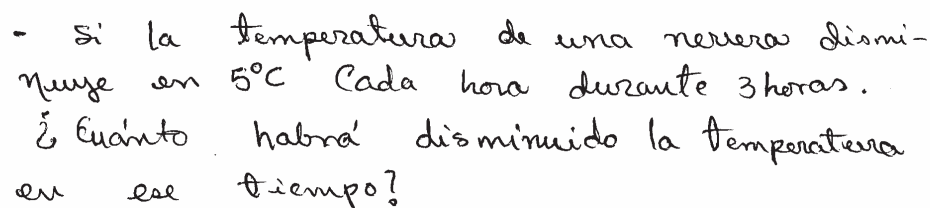 - Si la temperatura de una nevera dismi-
nuye en 5°C Cada hora durante 3 horas.
¿Cuánto habrá disminuido la temperatura
en ese tiempo?